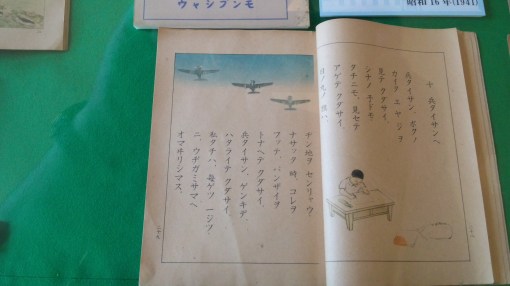 モンブシャウ
昭和16年(1941)
十 兵タイサンヘ
兵タイサン、ボクノ
カイタ ヱヤ ジヲ
見テ クダサイ。
シナノ 子ドモ
タチニモ、見セテ
アゲテ クダサイ。
日ノ丸ノ ハタハ、
ヂン地ヲ センリャウ
ナサッタ 時、コレヲ
フッテ、バンザイヲ
トナヘテ クダサイ。
兵タイサン、ゲンキデ
ハタライテ クダサイ。
私タチハ、毎ゲツ 一ジツ
ニ、ウヂガミサマヘ
オマヰリシマス。